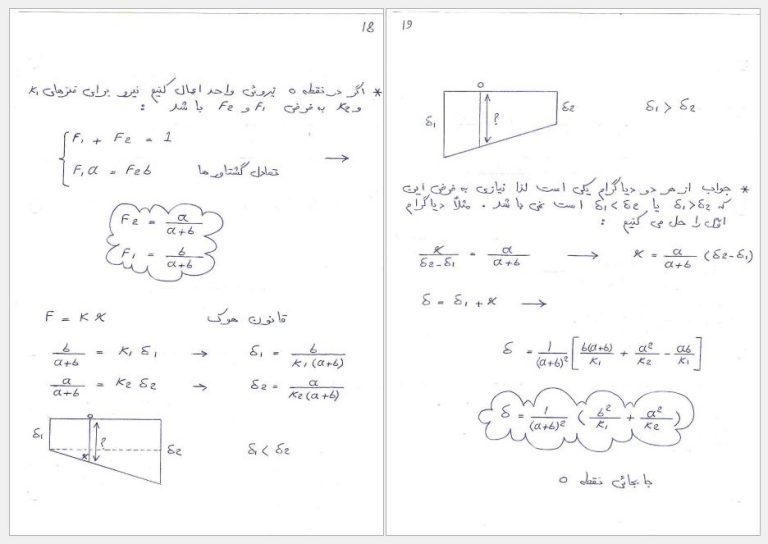 18
* اگر در نقطه o نیروئی واحد اعمال کنیم نیرو برای فنرهای K₁
و K₂ به فرض F₁ و F₂ باشد :
F₁ + F₂ = 1
F₁a = F₂b تعادل گشتاورها →
F₂ = a/(a+b)
F₁ = b/(a+b)
F = K x قانون هوک
b/(a+b) = K₁ δ₁ → δ₁ = b/(K₁(a+b))
a/(a+b) = K₂ δ₂ → δ₂ = a/(K₂(a+b))
o
δ₁ ? x δ₂ δ₁ < δ₂
19
o
δ₁ ? δ₂ δ₁ > δ₂
* جواب از هر دو دیاگرام یکی است لذا نیازی به فرض این
که δ₁>δ₂ یا δ₁<δ₂ است نمی باشد . مثلاً دیاگرام
اول را حل می کنیم :
x/(δ₂-δ₁) = a/(a+b) → x = a/(a+b) (δ₂-δ₁)
δ = δ₁ + x →
δ = 1/(a+b)² [ b(a+b)/K₁ + a²/K₂ - ab/K₁ ]
δ = 1/(a+b)² ( b²/K₁ + a²/K₂ )
جابجائی نقطه o